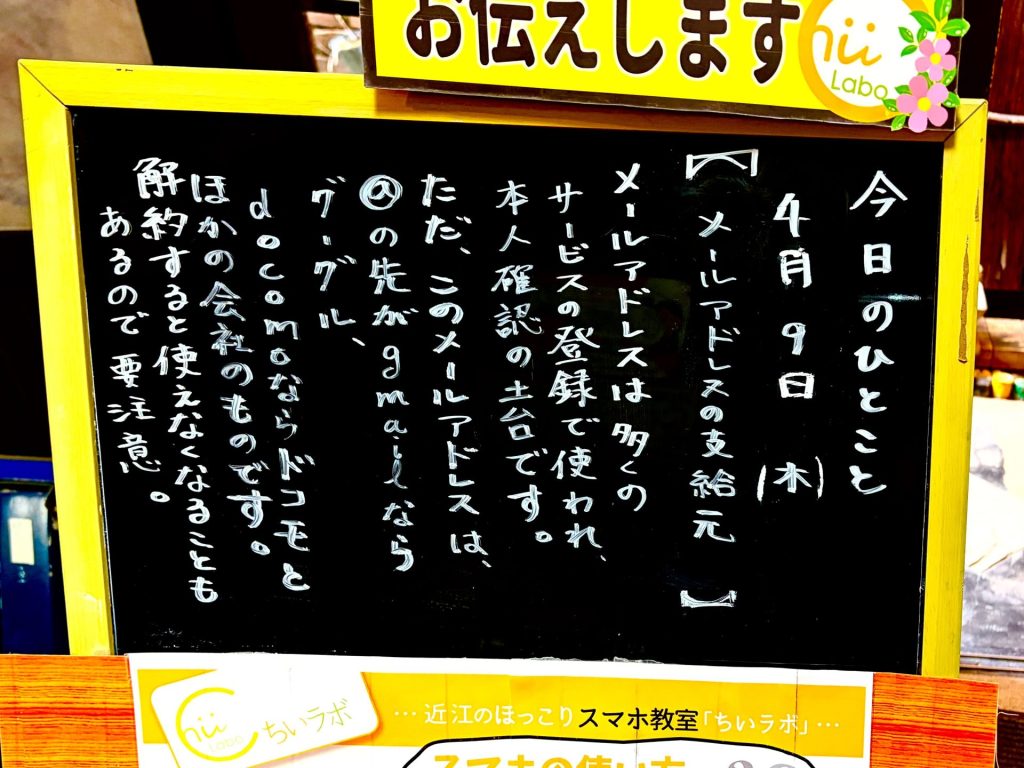 お伝えします
hii
Labo
今日のひとこと
4月9日(木)
【メールアドレスの支給元】
メールアドレスは多くの
サービスの登録で使われ、
本人確認の土台です。
ただ、このメールアドレスは、
@の先がgmailなら
グーグル、
docomoならドコモと
ほかの会社のものです。
解約すると使えなくなることも
あるので要注意。
hii
Labo
ちいラボ
…近江のほっこりスマホ教室「ちいラボ」…